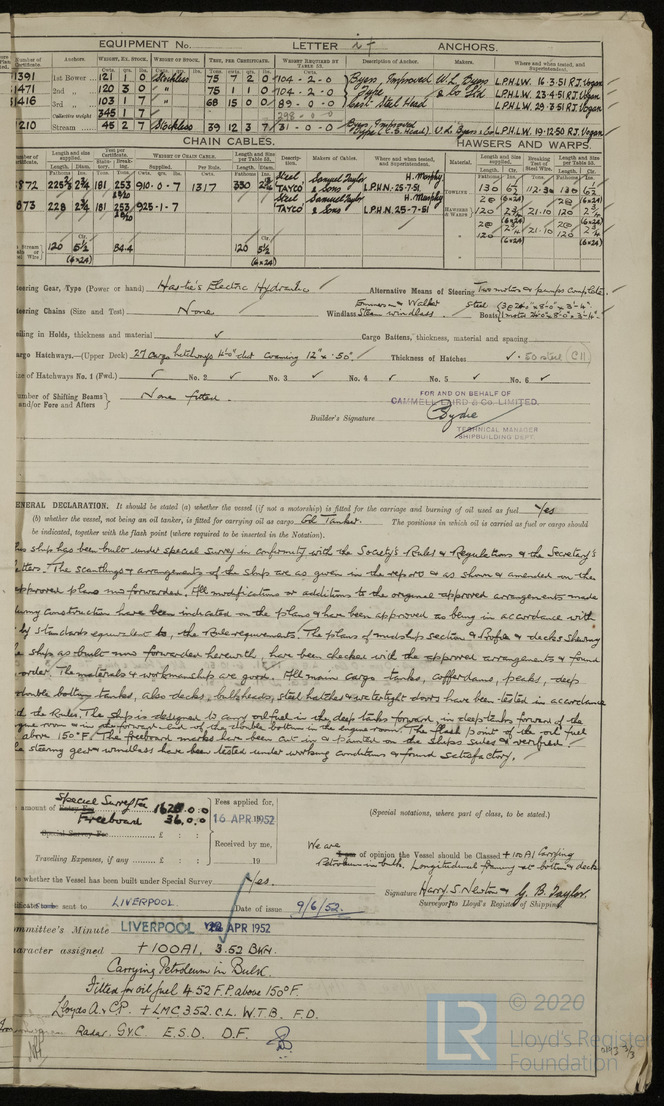 EQUIPMENT No. LETTER ANCHORS.
Number of Certificate. Anchors. WEIGHT, EX. STOCK. WEIGHT OF STOCK. TEST, PER CERTIFICATE. WEIGHT REQUIRED BY TABLE 53. Description of Anchor. Makers. Where and when tested, and Superintendent.
1391 1st Bower 121 1 0 Stockless 75 7 2 0 104 - 2 - 0 Byers, Improved W. L. Byers L.P.H.L.W. 16.3.51 R.J. Vogan
1471 2nd " 120 3 0 " 75 1 1 0 104 - 2 - 0 Type & Co Ltd L.P.H.L.W. 23.4.51 R.J. Vogan
1416 3rd " 103 1 7 " 68 15 0 0 89 - 0 - 0 Cast Steel Head L.P.H.L.W. 29.3.51 R.J. Vogan
Collective weight 345 1 7 298 - 0 - 0
1210 Stream 45 2 7 Stockless 39 12 3 7 31 - 0 - 0 Byers Improved Type (C.S. Head) W. L. Byers & Co L.P.H.L.W. 19.12.50 R.J. Vogan
CHAIN CABLES. HAWSERS AND WARPS.
Number of Certificate. Length and size supplied. Test per Certificate. WEIGHT OF CHAIN CABLE. Length and size per Table 53. Description. Makers of Cables. Where and when tested, and Superintendent. Material. Length and size supplied. Breaking Test of Steel Wire. Length and size per Table 53.
8872 2 3/4 181 253 910-0-7 1317 330 Steel TAYCO Samuel Taylor & Sons H. Murphy L.P.H.N. 25-7-51 TOWLINE 130 130
873 228 2 3/4 181 253 925-1-7 Steel TAYCO Samuel Taylor & Sons H. Murphy L.P.H.N. 25-7-51 HAWSERS & WARPS 2@ 120 2 3/4 (6×24) 21.10 2@ 120 2 3/4 (6×24)
120 5 1/2 (6×24) 84.4 120 5 1/2 (6×24) 2@ 120 2 3/4 (6×24) 21.10 2@ 120 2 3/4 (6×24)
Steering Gear, Type (Power or hand) Hastie's Electric Hydraulic Alternative Means of Steering Two motors & pumps complete.
Steering Chains (Size and Test) None Windlass Emmerson & Walker Steam windlass. Boats Steel
Ceiling in Holds, thickness and material ✓ Cargo Battens, thickness, material and spacing
Cargo Hatchways.—(Upper Deck) 27 Cargo hatchways 4'-0" dia Coaming 12" × ·50". Thickness of Hatches ✓ ·50 steel (C11)
Size of Hatchways No. 1 (Fwd.) ✓ No. 2 ✓ No. 3 ✓ No. 4 ✓ No. 5 ✓ No. 6 ✓
Number of Shifting Beams and/or Fore and Afters None fitted.
FOR AND ON BEHALF OF
CAMMELL LAIRD & Co. LIMITED.
Builder's Signature
TECHNICAL MANAGER
SHIPBUILDING DEPT.
GENERAL DECLARATION. It should be stated (a) whether the vessel (if not a motorship) is fitted for the carriage and burning of oil used as fuel Yes
(b) whether the vessel, not being an oil tanker, is fitted for carrying oil as cargo Oil Tanker. The positions in which oil is carried as fuel or cargo should
be indicated, together with the flash point (where required to be inserted in the Notation).
This ship has been built under special survey in conformity with the Society's Rules & Regulations & the Secretary's
letters. The scantlings & arrangements of the ship are as given in the report & as shown & amended on the
approved plans now forwarded. All modifications or additions to the original approved arrangements made
during construction have been indicated on the plans & have been approved as being in accordance with
by standards equivalent to, the Rule requirements. The plans of midship section & Profile & decks shewing
the ship as built now forwarded herewith, have been checked with the approved arrangements & found
in order. The materials & workmanship are good. All main cargo tanks, cofferdams, peaks, deep
double bottom tanks, also decks, bulkheads, steel hatches & watertight doors have been tested in accordance
with the Rules. The ship is designed to carry oil fuel in the deep tanks forward, in deep tanks forward of the
engine room & in the forward end of the double bottom in the engine room. The flash point of the oil fuel
is above 150°F. The freeboard marks have been cut in & painted on the ships sides & verified.
The steering gear & windlass have been tested under working conditions & found satisfactory.
Special Survey Fee 1620.0.0
Freeboard 36.0.0
Special Survey Fee £ : :
Travelling Expenses, if any £ : :
Fees applied for,
16 APR 1952
Received by me,
19
(Special notations, where part of class, to be stated.)
We are of opinion the Vessel should be Classed +100A1 Carrying
Petroleum in bulk. Longitudinal framing at bottom & deck
State whether the Vessel has been built under Special Survey Yes.
Signature Harry S. Newton & G. B. Taylor.
Surveyors to Lloyd's Register of Shipping
Certificate sent to LIVERPOOL. Date of issue 9/6/52.
Committee's Minute LIVERPOOL 22 APR 1952
Character assigned +100A1, 3.52 BKH.
Carrying Petroleum in Bulk.
Fitted for oil fuel 4.52 F.P. above 150°F.
Lloyds A. & C.P. +LMC 3.52. C.L. W.T.B. F.D.
Radar. Gy.C. E.S.D. D.F.
LR
© 2020
Lloyd's Register
Foundation
0193 3/3